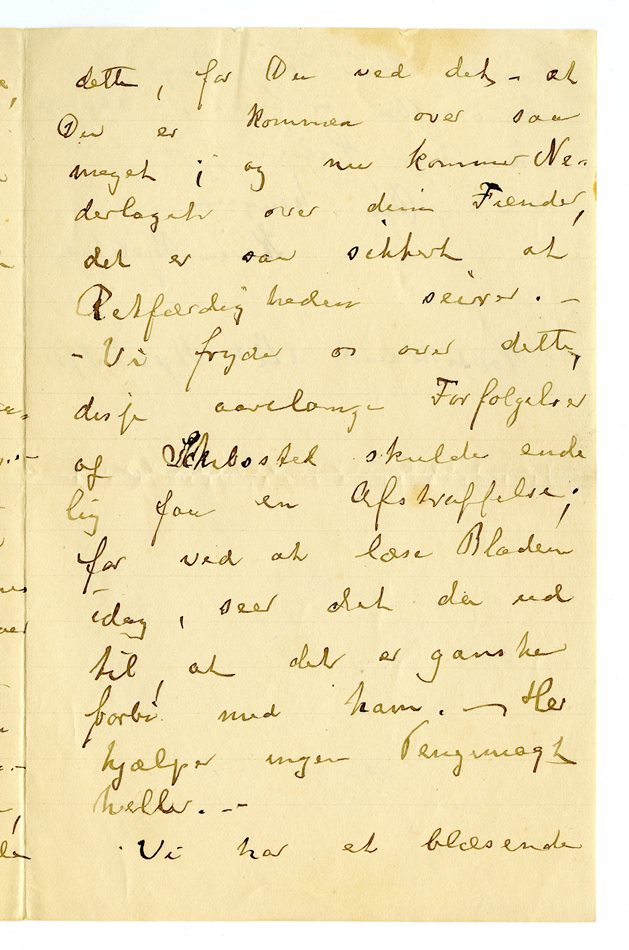 dette, for Du ved det – at
Du er kommen over saa
meget; og nu kommer Ne-
derlaget over dine Fiender,
det er saa sikkert at
Retfærdigheden seirer. –
– Vi fryder os over dette,
disse aarelange Forfølgelser
af Schibsted skulde ende
lig faa en Afstraffelse;
for ved at læse Bladene
idag, seer det da ud
til, at det er ganske
forbi med ham. – Her
hjælper ingen Pengemagt
heller. –
Vi har et blæsende